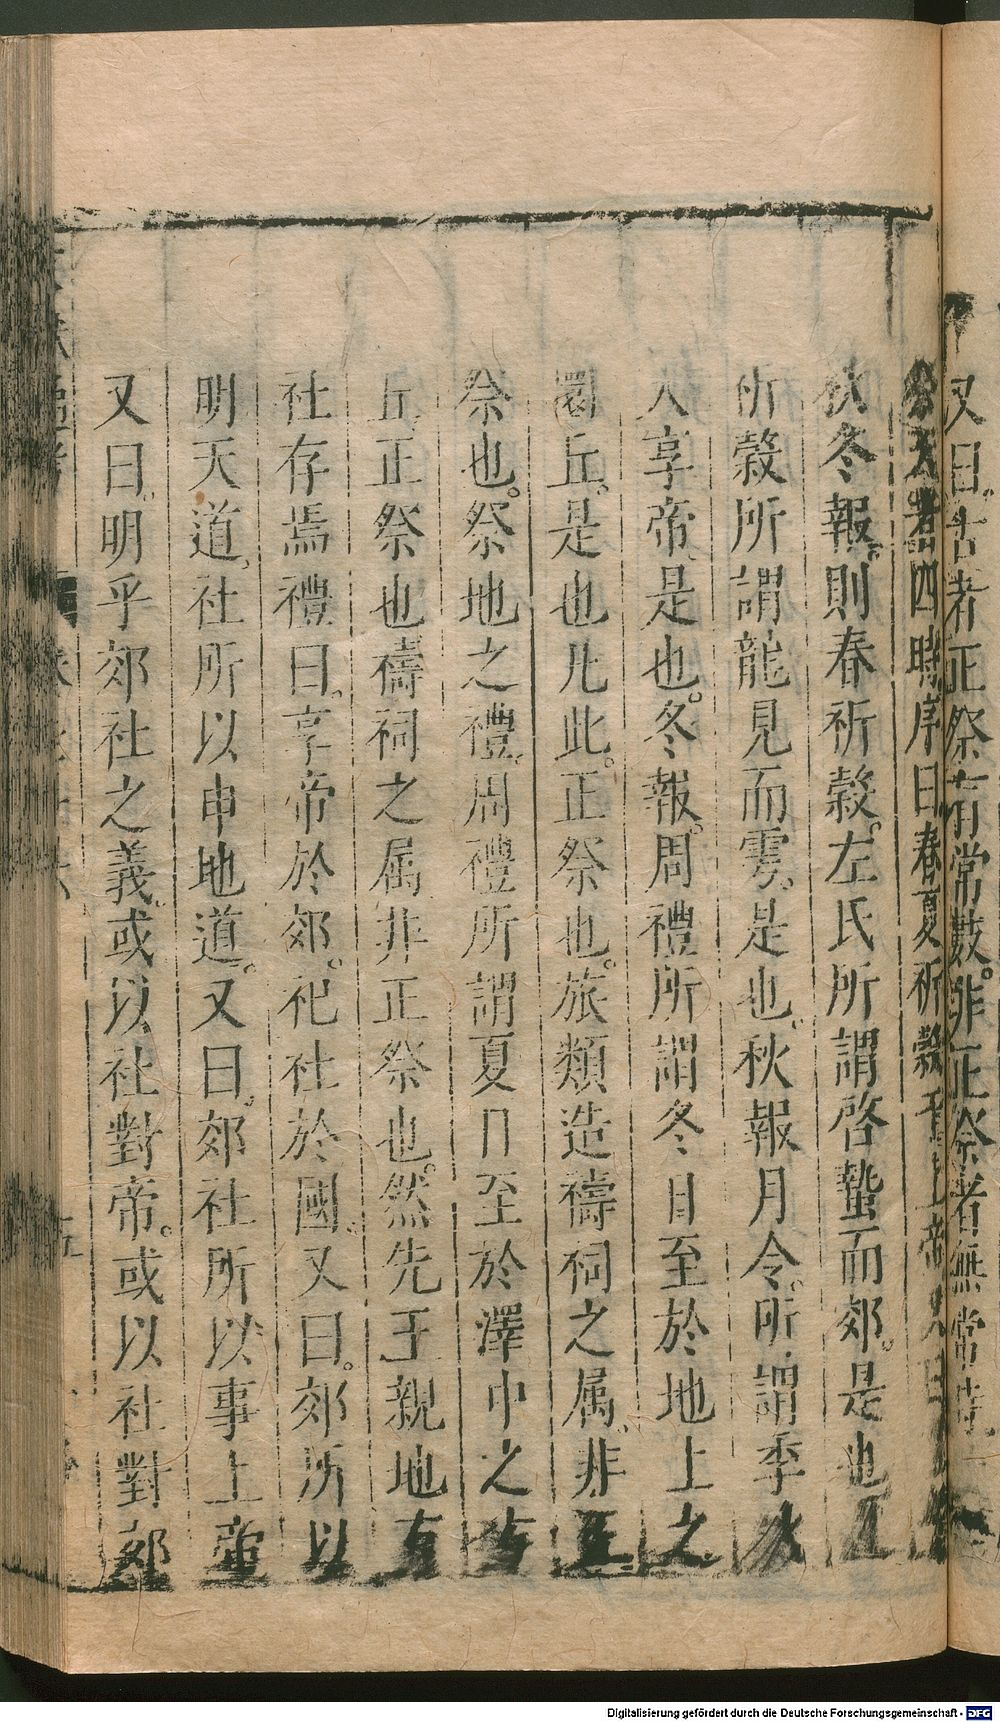 又曰古者正祭有常數非正祭者無常時
者四時序曰春夏祈穀于上帝
秋冬報則春祈穀左氏所謂啓蟄而郊是也
祈穀所謂龍見而雩是也秋報月令所謂季秋
大享帝是也冬報周禮所謂冬日至於地上之
圜丘是也凡此正祭也旅類造禱祠之属非正
祭也祭地之禮周禮所謂夏日至於澤中之方
丘正祭也禱祠之属非正祭也然先王親地有
社存焉禮曰享帝於郊祀社於國又曰郊所以
明天道社所以申地道又曰郊社所以事上帝
又曰明乎郊社之義或以社對帝或以社對郊
Digitalisierung gefördert durch die Deutsche Forschungsgemeinschaft - DFG